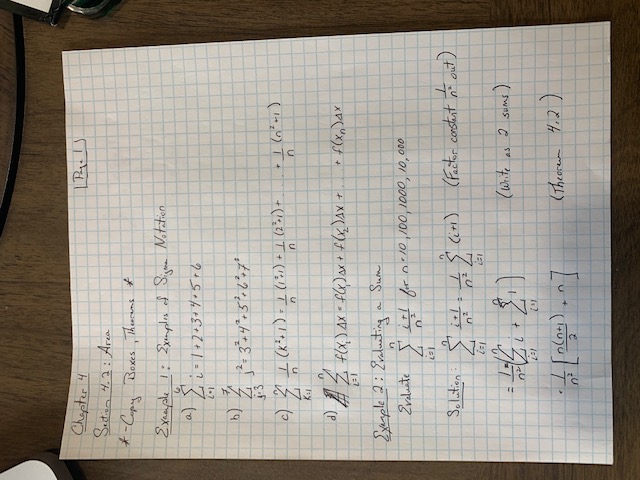 Chapter 4 Page 1
Section 4.2: Area
* - Copy Boxes, Theorems *
Example 1: Examples of Sigma Notation
a) ∑_{i=1}^{6} i = 1+2+3+4+5+6
b) ∑_{j=3}^{7} j² = 3²+4²+5²+6²+7²
c) ∑_{k=1}^{n} 1/n (k²+1) = 1/n (1²+1) + 1/n (2²+1) + ... + 1/n (n²+1)
d) ∑_{i=1}^{n} f(x_i) Δx = f(x_1) Δx + f(x_2) Δx + ... + f(x_n) Δx
Example 2: Evaluating a Sum
Evaluate ∑_{i=1}^{n} (i+1)/n² for n=10, 100, 1000, 10,000
Solution: ∑_{i=1}^{n} (i+1)/n² = 1/n² ∑_{i=1}^{n} (i+1) (Factor constant 1/n² out)
= 1/n² (∑_{i=1}^{n} i + ∑_{i=1}^{n} 1) (Write as 2 sums)
= 1/n² [n(n+1)/2 + n] (Theorem 4.2)